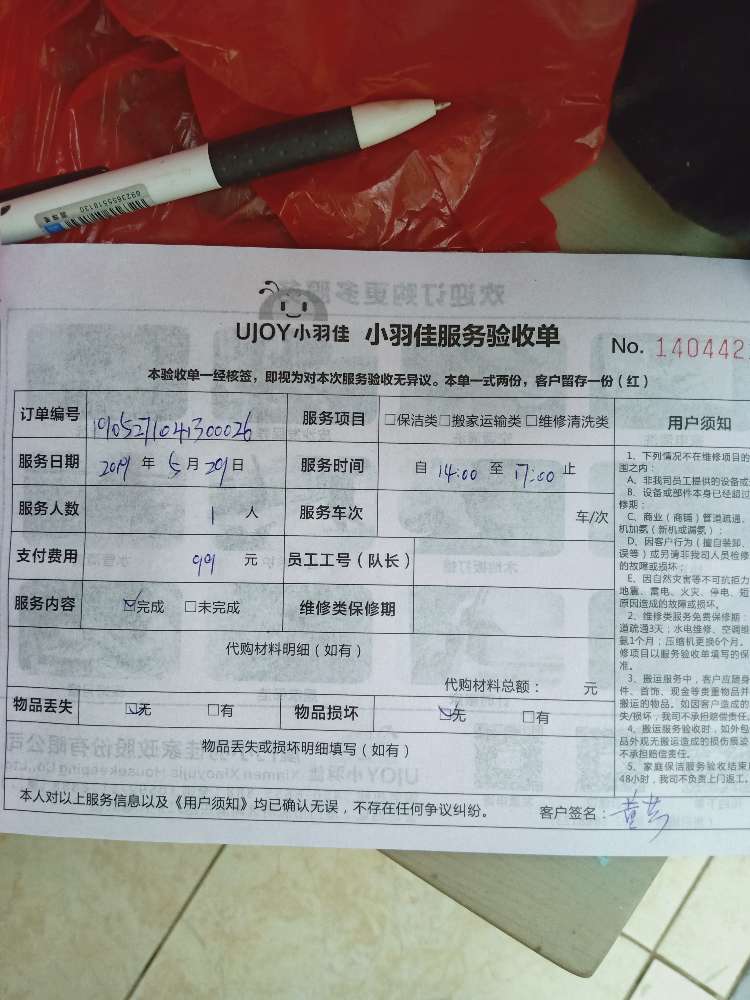 6923655518120
欢迎订购更多服务
UJOY小羽佳 小羽佳服务验收单
No. 140442
本验收单一经核签，即视为对本次服务验收无异议。本单一式两份，客户留存一份（红）
订单编号 1905271041300026 服务项目 □保洁类□搬家运输类□维修清洗类
服务日期 2019 年 5 月 29 日 服务时间 自 14:00 至 17:00 止
服务人数 1 人 服务车次 车/次
支付费用 99 元 员工工号（队长）
服务内容 ☑完成 □未完成 维修类保修期
代购材料明细（如有）
代购材料总额： 元
物品丢失 ☑无 □有 物品损坏 ☑无 □有
物品丢失或损坏明细填写（如有）
本人对以上服务信息以及《用户须知》均已确认无误，不存在任何争议纠纷。 客户签名：黄艺
用户须知
1、下列情况不在维修项目的
围之内：
A、非我司员工提供的设备或
B、设备或部件本身已经超过
修期；
C、商业（商铺）管道疏通、
机加氨（新机或漏氨）；
D、因客户行为（擅自装卸、
误等）或另请非我司人员检修
的故障或损坏；
E、因自然灾害等不可抗拒力
地震、雷电、火灾、停电、短
原因造成的故障或损坏。
2、维修类服务免费保修期：
道疏通3天；水电维修、空调维
氨1个月；压缩机更换6个月。
修项目以服务验收单填写的保
准。
3、搬运服务中，客户应随身
件、首饰、现金等贵重物品并
搬运的物品。如因客户造成的
失/损坏，我司不承担赔偿责任。
4、搬运服务验收时，如外包
品外观无搬运造成的损伤痕迹
不承担赔偿责任。
5、家庭保洁服务验收结束后
48小时，我司不负责上门返工。